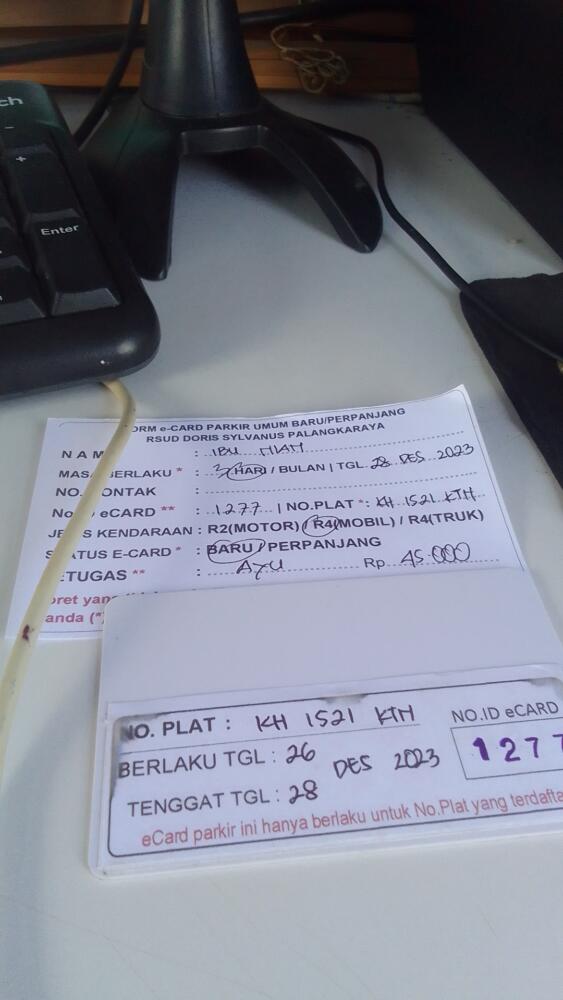 ch
Enter
ORM e-CARD PARKIR UMUM BARU/PERPANJANG
RSUD DORIS SYLVANUS PALANGKARAYA
NAM : IBU
MAS BERLAKU * : 3 HARI / BULAN | TGL. 28 DES 2023
NO. ONTAK :
No. eCARD ** : 1277 | NO.PLAT *: KH 1521 KTH
JE S KENDARAAN : R2(MOTOR) / R4(MOBIL) / R4(TRUK)
S ATUS E-CARD * : BARU / PERPANJANG
ETUGAS ** : AYU Rp 45.000
oret yan
anda (*)
NO. PLAT : KH 1521 KTH
NO.ID eCARD
BERLAKU TGL : 26 DES 2023
1277
TENGGAT TGL : 28
eCard parkir ini hanya berlaku untuk No.Plat yang terdafta